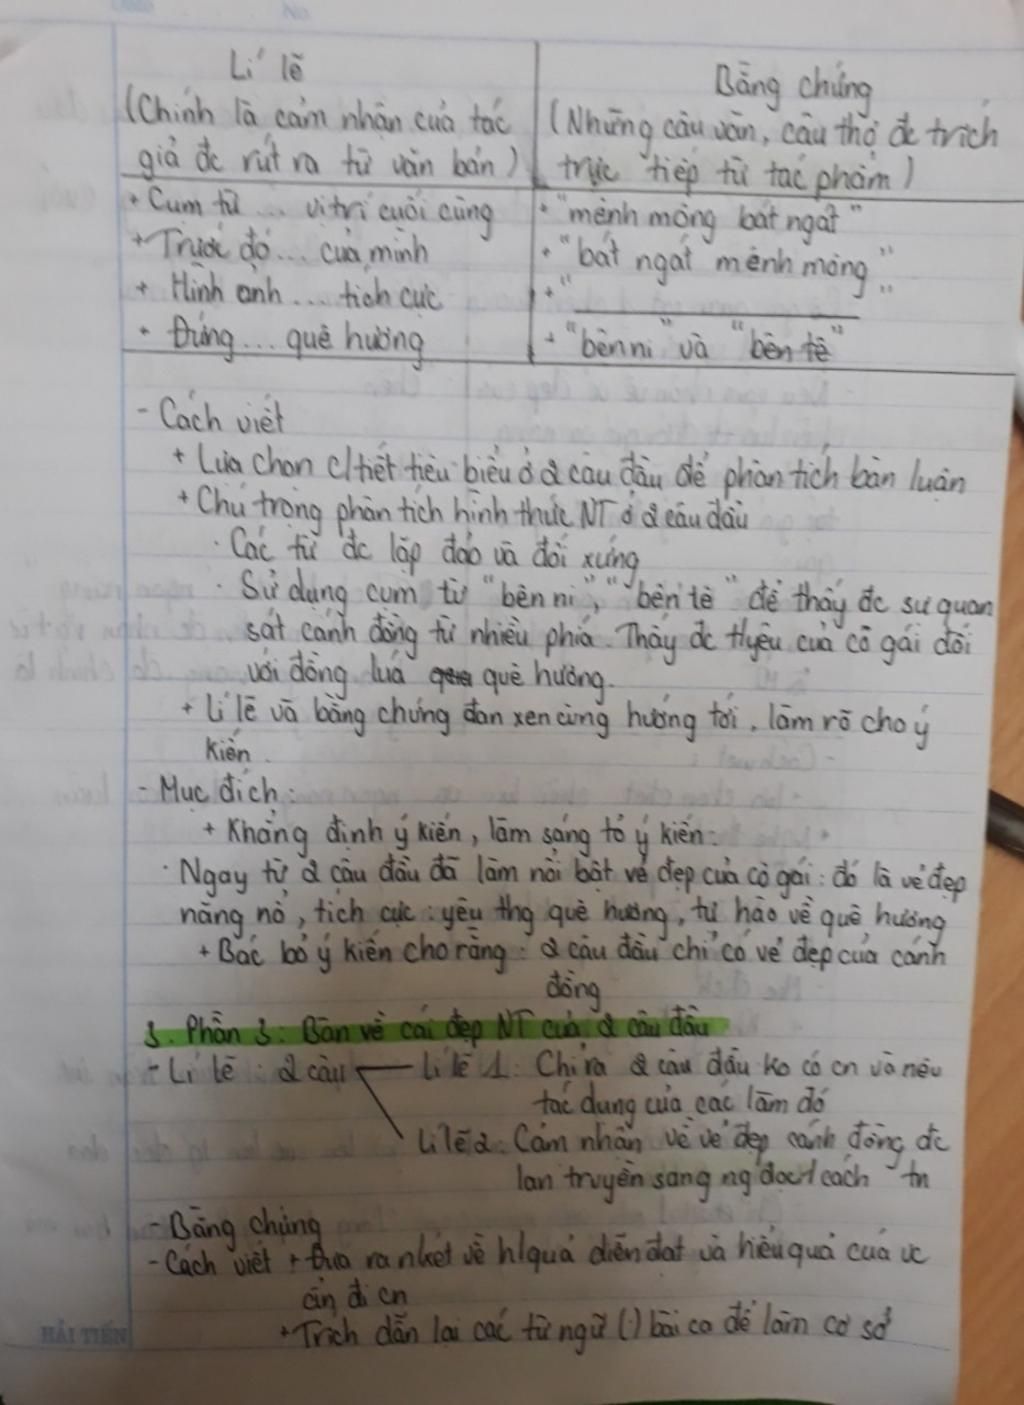 No
Lí lẽ
Bằng chứng
(Chính là cảm nhận của tác
giả đc rút ra từ văn bản)
(Những câu văn, câu thơ đc trích
trực tiếp từ tác phẩm)
+ Cụm từ ... vị trí cuối cùng
+ "mênh mông bát ngát"
+ Trước đó ... của mình
+ "bát ngát mênh mông"
+ Hình ảnh ... tích cực
+ "          "
+ Đứng ... quê hương
+ "bên ni" và "bên tê"
- Cách viết
+ Lựa chọn c/tiết tiêu biểu ở 2 câu đầu để phân tích bàn luận
+ Chú trọng phân tích hình thức NT ở 2 câu đầu
· Các từ đc lặp đảo và đối xứng
· Sử dụng cụm từ "bên ni", "bên tê" để thấy đc sự quan
sát cánh đồng từ nhiều phía. Thấy đc tyêu của cô gái đối
với đồng lúa quê hương.
+ Lí lẽ và bằng chứng đan xen cùng hướng tới, làm rõ cho ý
kiến.
- Mục đích:
+ Khẳng định ý kiến, làm sáng tỏ ý kiến:
· Ngay từ 2 câu đầu đã làm nổi bật vẻ đẹp của cô gái: đó là vẻ đẹp
năng nổ, tích cực: yêu thg quê hương, tự hào về quê hương
+ Bác bỏ ý kiến cho rằng: 2 câu đầu chỉ có vẻ đẹp của cánh
đồng
3. Phần 3: Bàn về cái đẹp NT của 2 câu đầu
- Lí lẽ: 2 câu
Lí lẽ 1: Chỉ ra 2 câu đầu ko có cn và nêu
tác dụng của các làm đó
Lí lẽ 2: Cảm nhận về vẻ đẹp cánh đồng đc
lan truyền sang ng đọc 1 cách tn
- Bằng chứng
- Cách viết + Đưa ra nxét về h/quả diễn đạt và hiệu quả của vc
ẩn đi cn
+ Trích dẫn lại các từ ngữ (·) bài ca để làm cơ sở
HẢI TIẾN